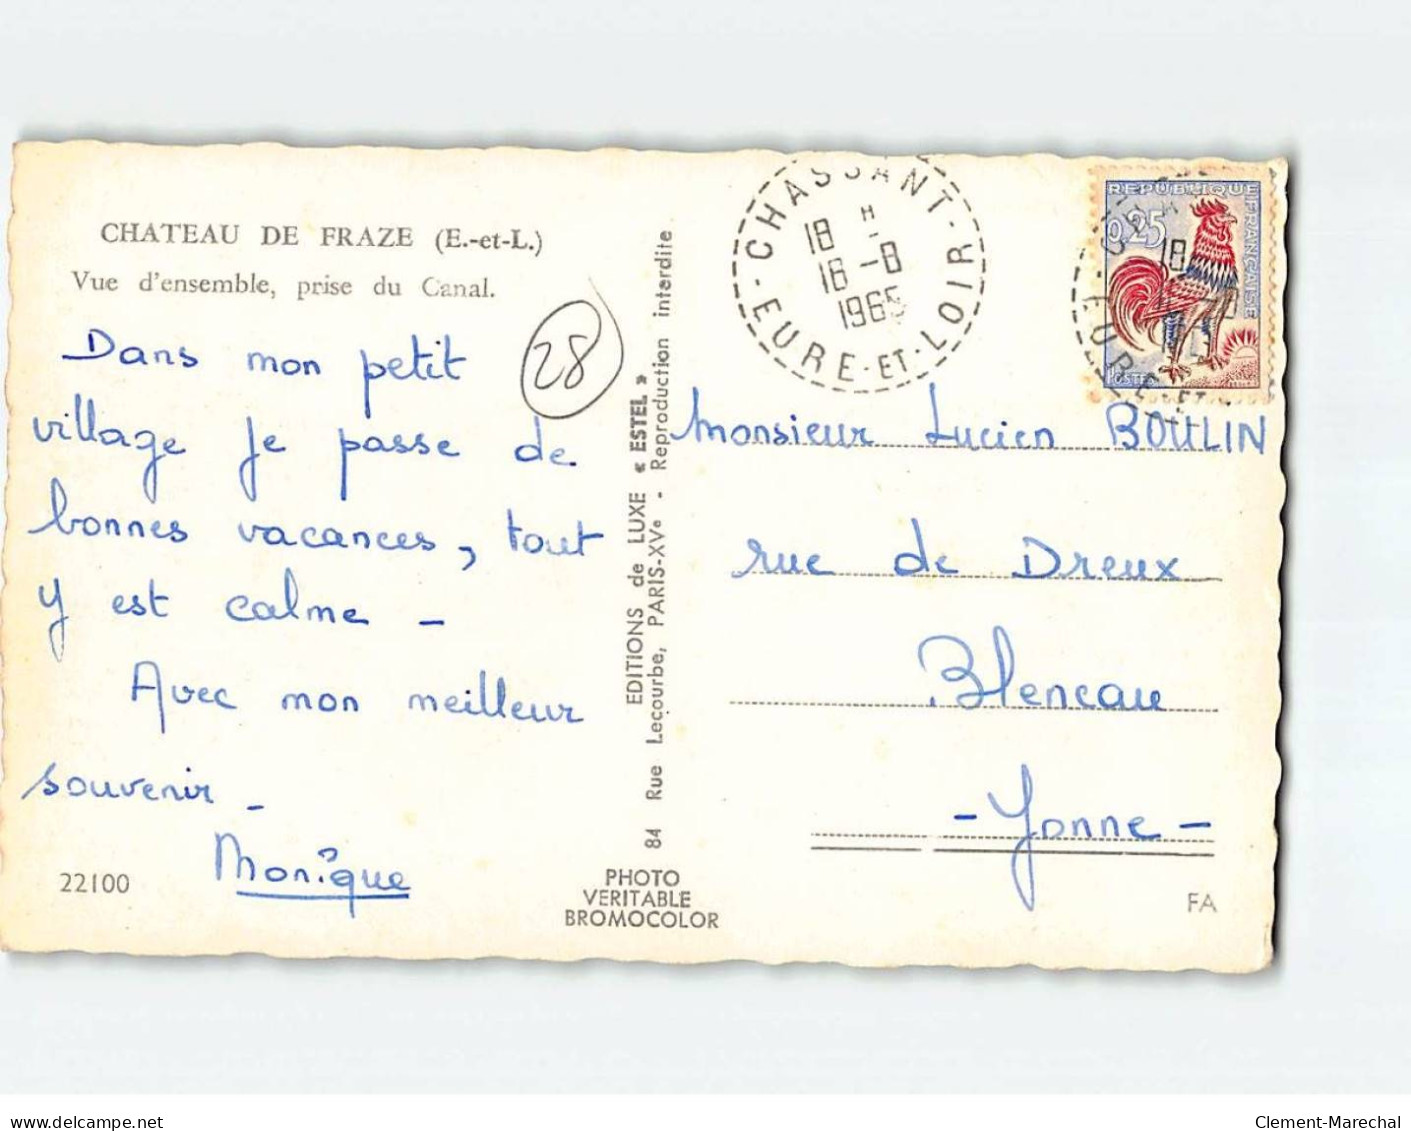 CHATEAU DE FRAZE (E.-et-L.)
Vue d'ensemble, prise du Canal.
28
Dans mon petit
village je passe de
bonnes vacances, tout
y est calme -
Avec mon meilleur
souvenir -
Monique
22100
EDITIONS de LUXE « ESTEL »
84 Rue Lecourbe, PARIS-XVe - Reproduction interdite
PHOTO
VERITABLE
BROMOCOLOR
CHASSANT
18 H
18 -8
1965
EURE-ET-LOIR
REPUBLIQUE FRANCAISE
0,25
POSTES
Monsieur Lucien BOULIN
rue de Dreux
Bleneau
- Yonne -
FA
www.delcampe.net
Clement-Marechal